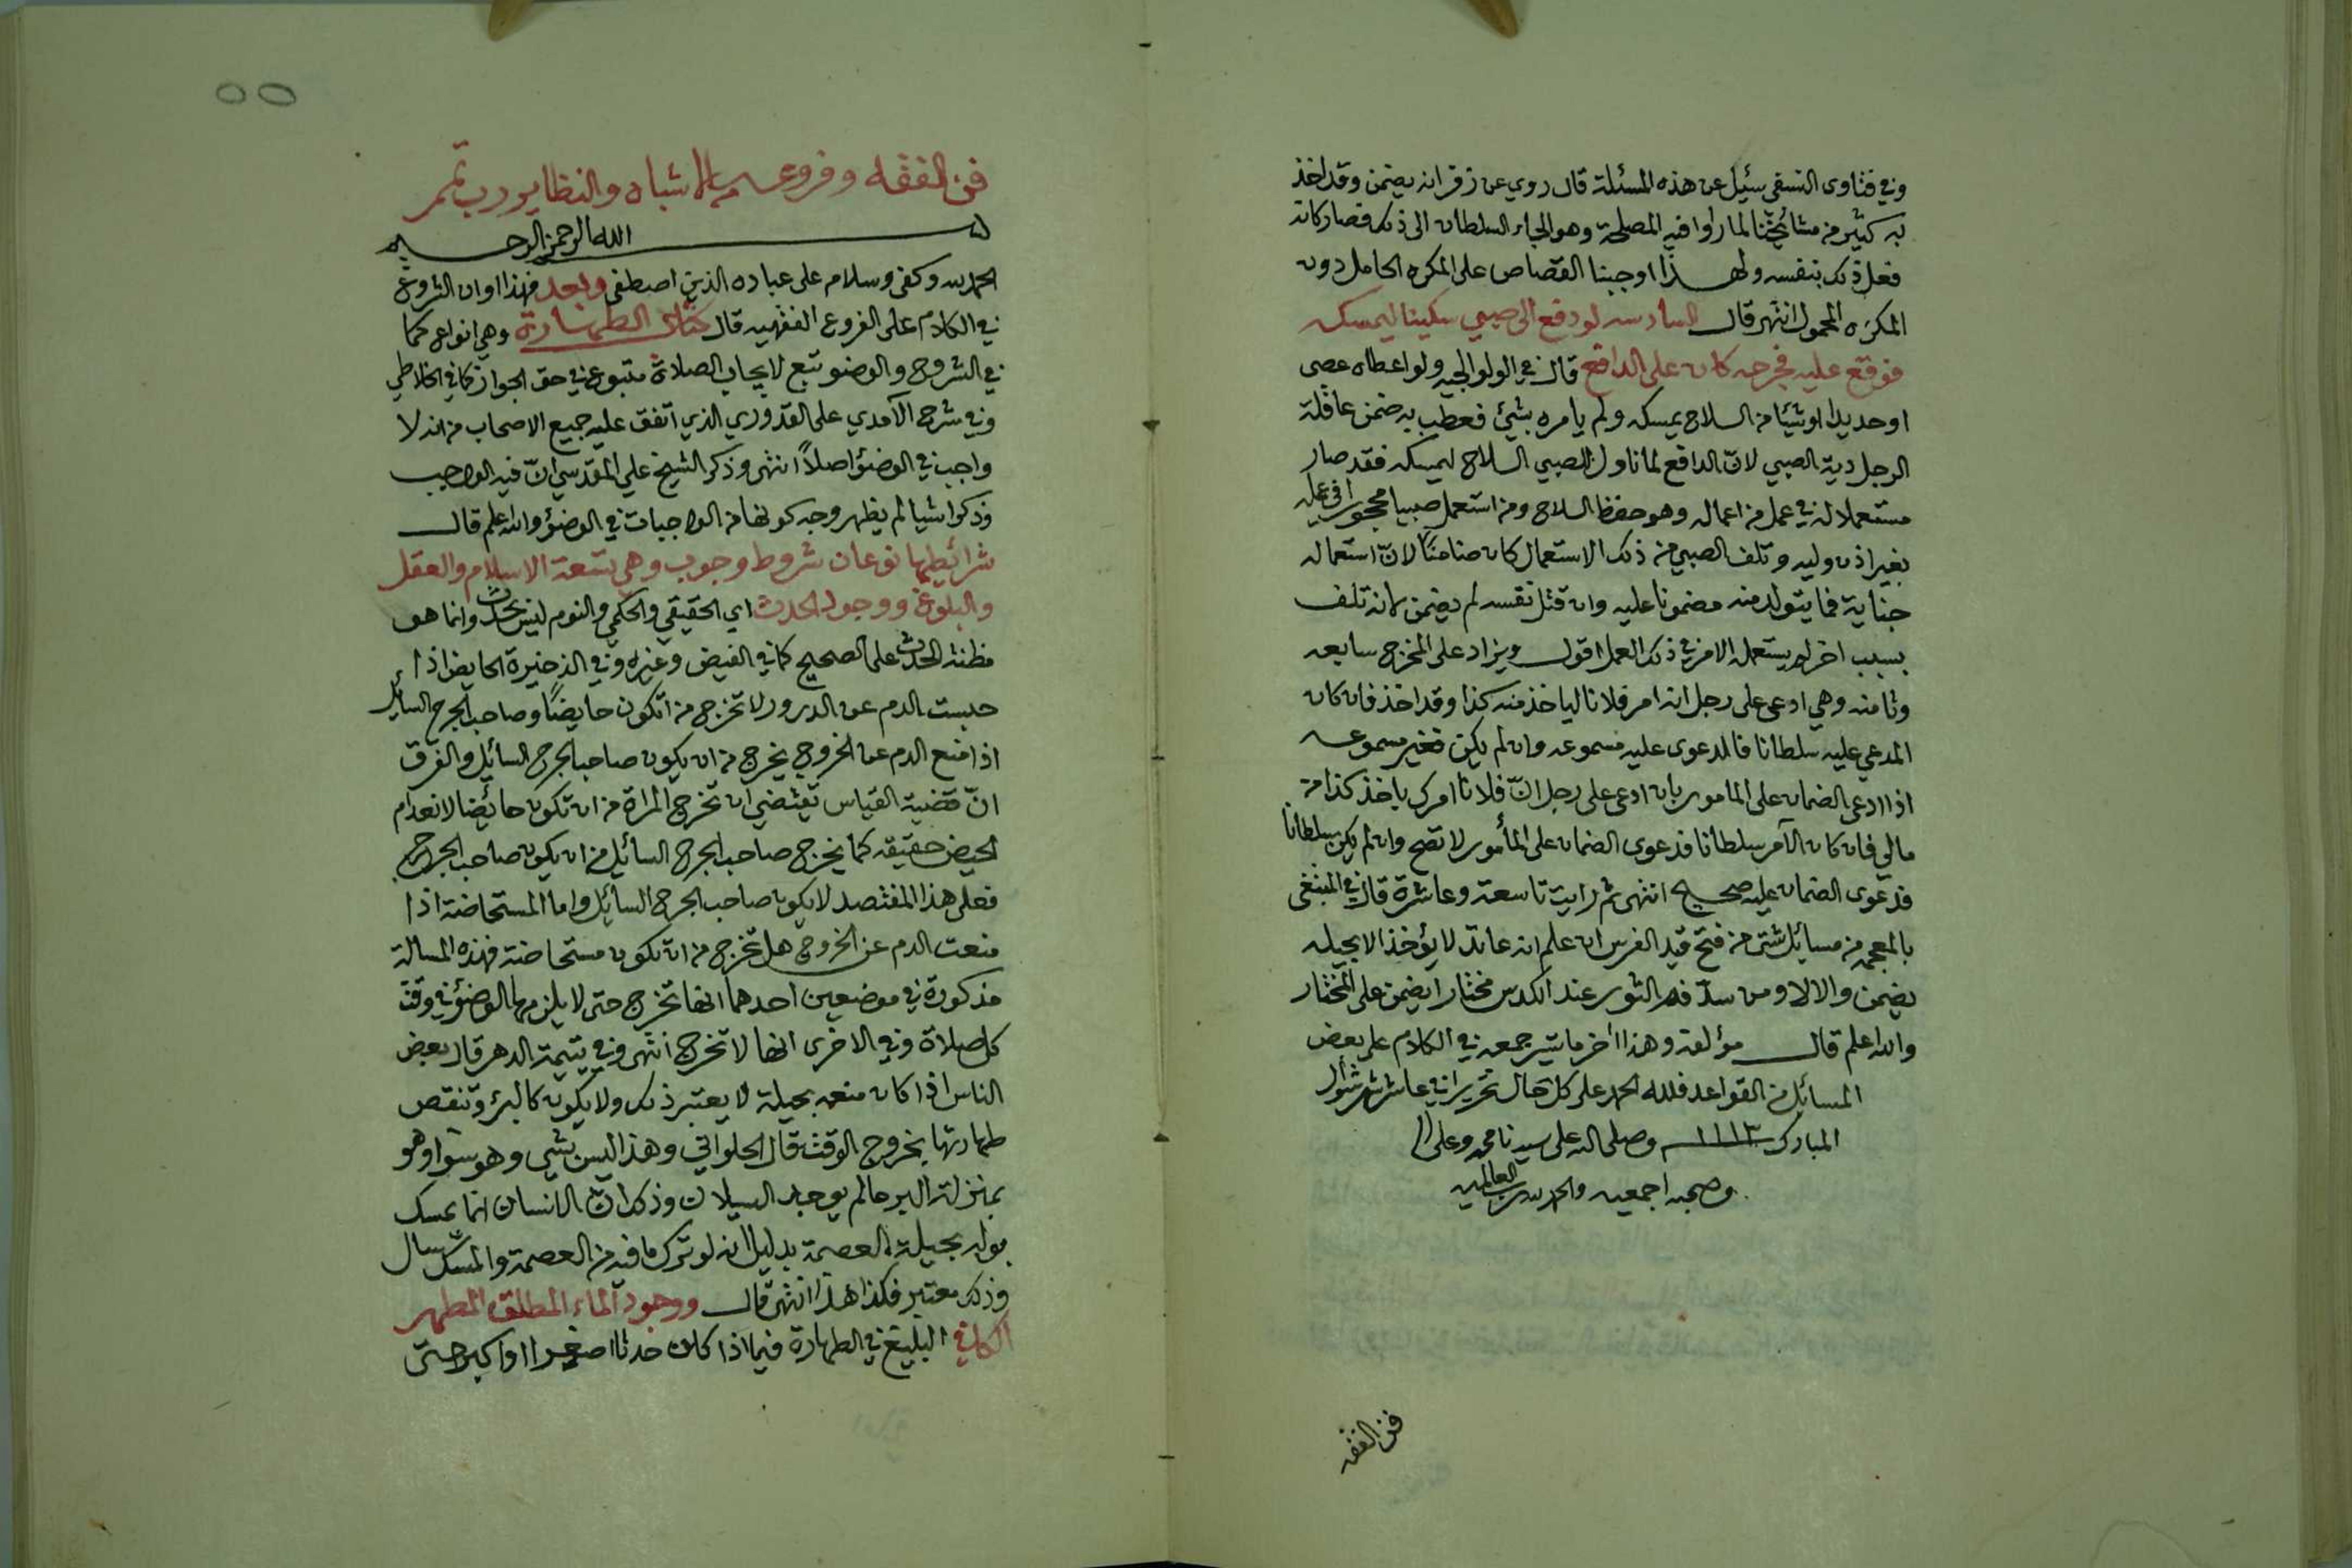 وفي فتاوى النسفي سئيل عن هذه المسئلة قال روي عن زفر انه يضمن وقد اخذ
به كثير من مشائخنا لما راوا فيه المصلحة وهو الجاء السلطان الى ذلك فصار كانه
فعل ذلك بنفسه ولهذا اوجبنا القصاص على المكره الحامل دون
المكرَه المحمول انتهى قال السادسه لو دفع الى صبي سكينا ليمسكه
فوقع عليه فجرحه كان على الدافع قال في الولوالجيه ولو اعطاه عصى
او حديدا او شيئا من السلاح يمسكه ولم يامره بشيئ فعطب به ضمن عاقلة
الرجل دية الصبي لانّ الدافع لما ناول الصبي السلاح ليمسكه فقد صار
مستعملا له في عمل من اعماله وهو حفظ السلاح ومن استعمل صبيا محجورا في عمله
بغير اذن وليه وتلف الصبي من ذلك الاستعمال كان ضامنًا لانّ استعماله
جناية فما يتولد منه مضمونا عليه وان قتل نفسه لم يضمن لانه تلف
بسبب اخر لم يستعمله الامر في ذلك العمل اقول ويزاد على المخرج سابعه
وثامنه وهي ادعى على رجل انه امر فلانا لياخذ منه كذا وقد اخذ فان كان
المدعي عليه سلطانا فالدعوى عليه مسموعه وان لم يكن فغير مسموعه
اذا ادعى الضمان على المامور بان ادعى على رجل انّ فلانا امرك باخذ كذا من
مالي فان كان الآمر سلطانا فدعوى الضمان على المأمور لا تصح وان لم يكن سلطانا
فدعوى الضمان عليه صحيح انتهى ثم رايت تاسعة وعاشرة قال في المبتغى
بالمعجمه من مسائل شتى من فتح قيد الفرس ان علم انه عاند لا يؤخذ الا بحيله
يضمن والا لا ومن سدّ فم الثور عند الكدس مختارا يضمن على المختار
والله اعلم قال مؤلفه وهذا اخر ما تيسر جمعه في الكلام على بعض
المسائل من القواعد فلله الحمد على كل حال تحريرا في عاشر شهر شوال
المبارك ١١١٣ وصلى الله على سيدنا محمد وعلى ال
وصحبه اجمعين والحمد لله رب العالمين
فن الفقه
٥٥
فن الفقه وفروعه من الاشباه والنظاير رب تمم
بسم الله الرحمن الرحيم
الحمد لله وكفى وسلام على عباده الذين اصطفى وبعد فهذا اوان الشروع
في الكلام على الفروع الفقهيه قال كتاب الطهارة وهي انواع كما
في الشروح والوضو تبع لايجاب الصلاة متبوع في حق الجواز كما في الخلاطي
وفي شرح الآمدي على القدوري الذي اتفق عليه جميع الاصحاب من انه لا
واجب في الوضؤ اصلاً انتهى وذكر الشيخ علي المقدسي انّ فيه الواجب
وذكر اشيا لم يظهر وجه كونها من الواجبات في الوضؤ والله اعلم قال
شرائطها نوعان شروط وجوب وهي تسعة الاسلام والعقل
والبلوغ ووجود الحدث اي الحقيقي والحكمي والنوم ليس بحدث وانما هو
مظنة الحدث على الصحيح كما في الفيض وغيره وفي الذخيرة الحايض اذا
حبست الدم عن الدرور لا تخرج من ان تكون حايضًا وصاحب الجرح السايل
اذا منع الدم عن الخروج يخرج من ان يكون صاحب الجرح السائل والفرق
انّ قضية القياس تقتضي ان تخرج المراة من ان تكون حائضا لانعدام
الحيض حقيقه كما يخرج صاحب الجرح السائل من ان يكون صاحب الجرح
فعلى هذا المفتصد لا يكون صاحب الجرح السائل واما المستحاضة اذا
منعت الدم عن الخروج هل تخرج من ان تكون مستحاضة فهذه المسالة
مذكورة في موضعين احدهما انها تخرج حتى لا يلزمها الوضؤ في وقت
كل صلاة وفي الاخرى انها لا تخرج انتهى وفي يتيمة الدهر قال بعض
الناس اذا كان منعه بحيلة لا يعتبر ذلك ولا يكون كالبرؤ وتنقص
طهارتها بخروج الوقت قال الحلواني وهذا ليس بشي وهو سوا وهو
بمنزلة البرء مالم يوجد السيلان وذكر انّ الانسان انما يمسك
بوله بحيلة العصمة بدليل انه لو ترك ما فيه من العصمة والمسك سال
وذلك معتبر فكذا هذا انتهى قال ووجود الماء المطلق المطهر
الكافي البليغ في الطهارة فيما اذا كان حدثا اصغرا او اكبر حتى